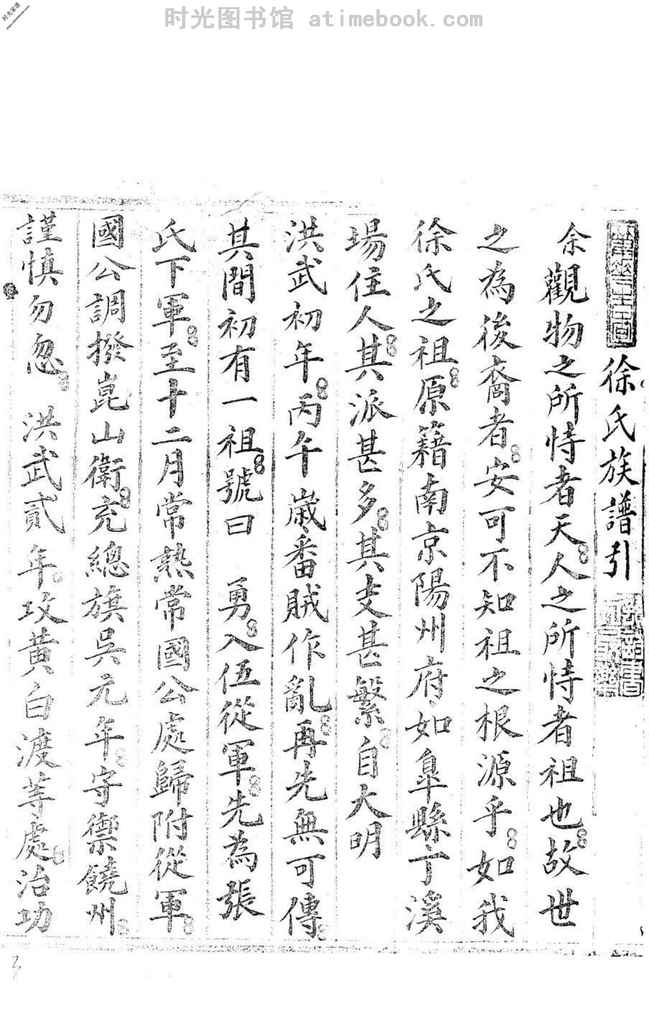 时光图书馆 atimebook.com
徐氏族譜引
余觀物之所恃者天人之所恃者祖也故世
之為後裔者安可不知祖之根源乎如我
徐氏之祖原籍南京陽州府如臯縣丁溪
場住人其派甚多其支甚繁自大明
洪武初年丙午嵗番賊作亂再先無可傳
其間初有一祖號曰 勇入伍從軍先為張
氏下軍至十二月常熟常國公處歸附從軍
國公調撥崑山衛充總旗吳元年守禦饒州
謹慎勿忽 洪武貳年攻黃白渡等處治功
3